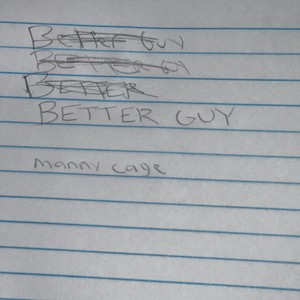 Better Guy
BETTER GUY
BETTER
BETTER GUY
manny cage